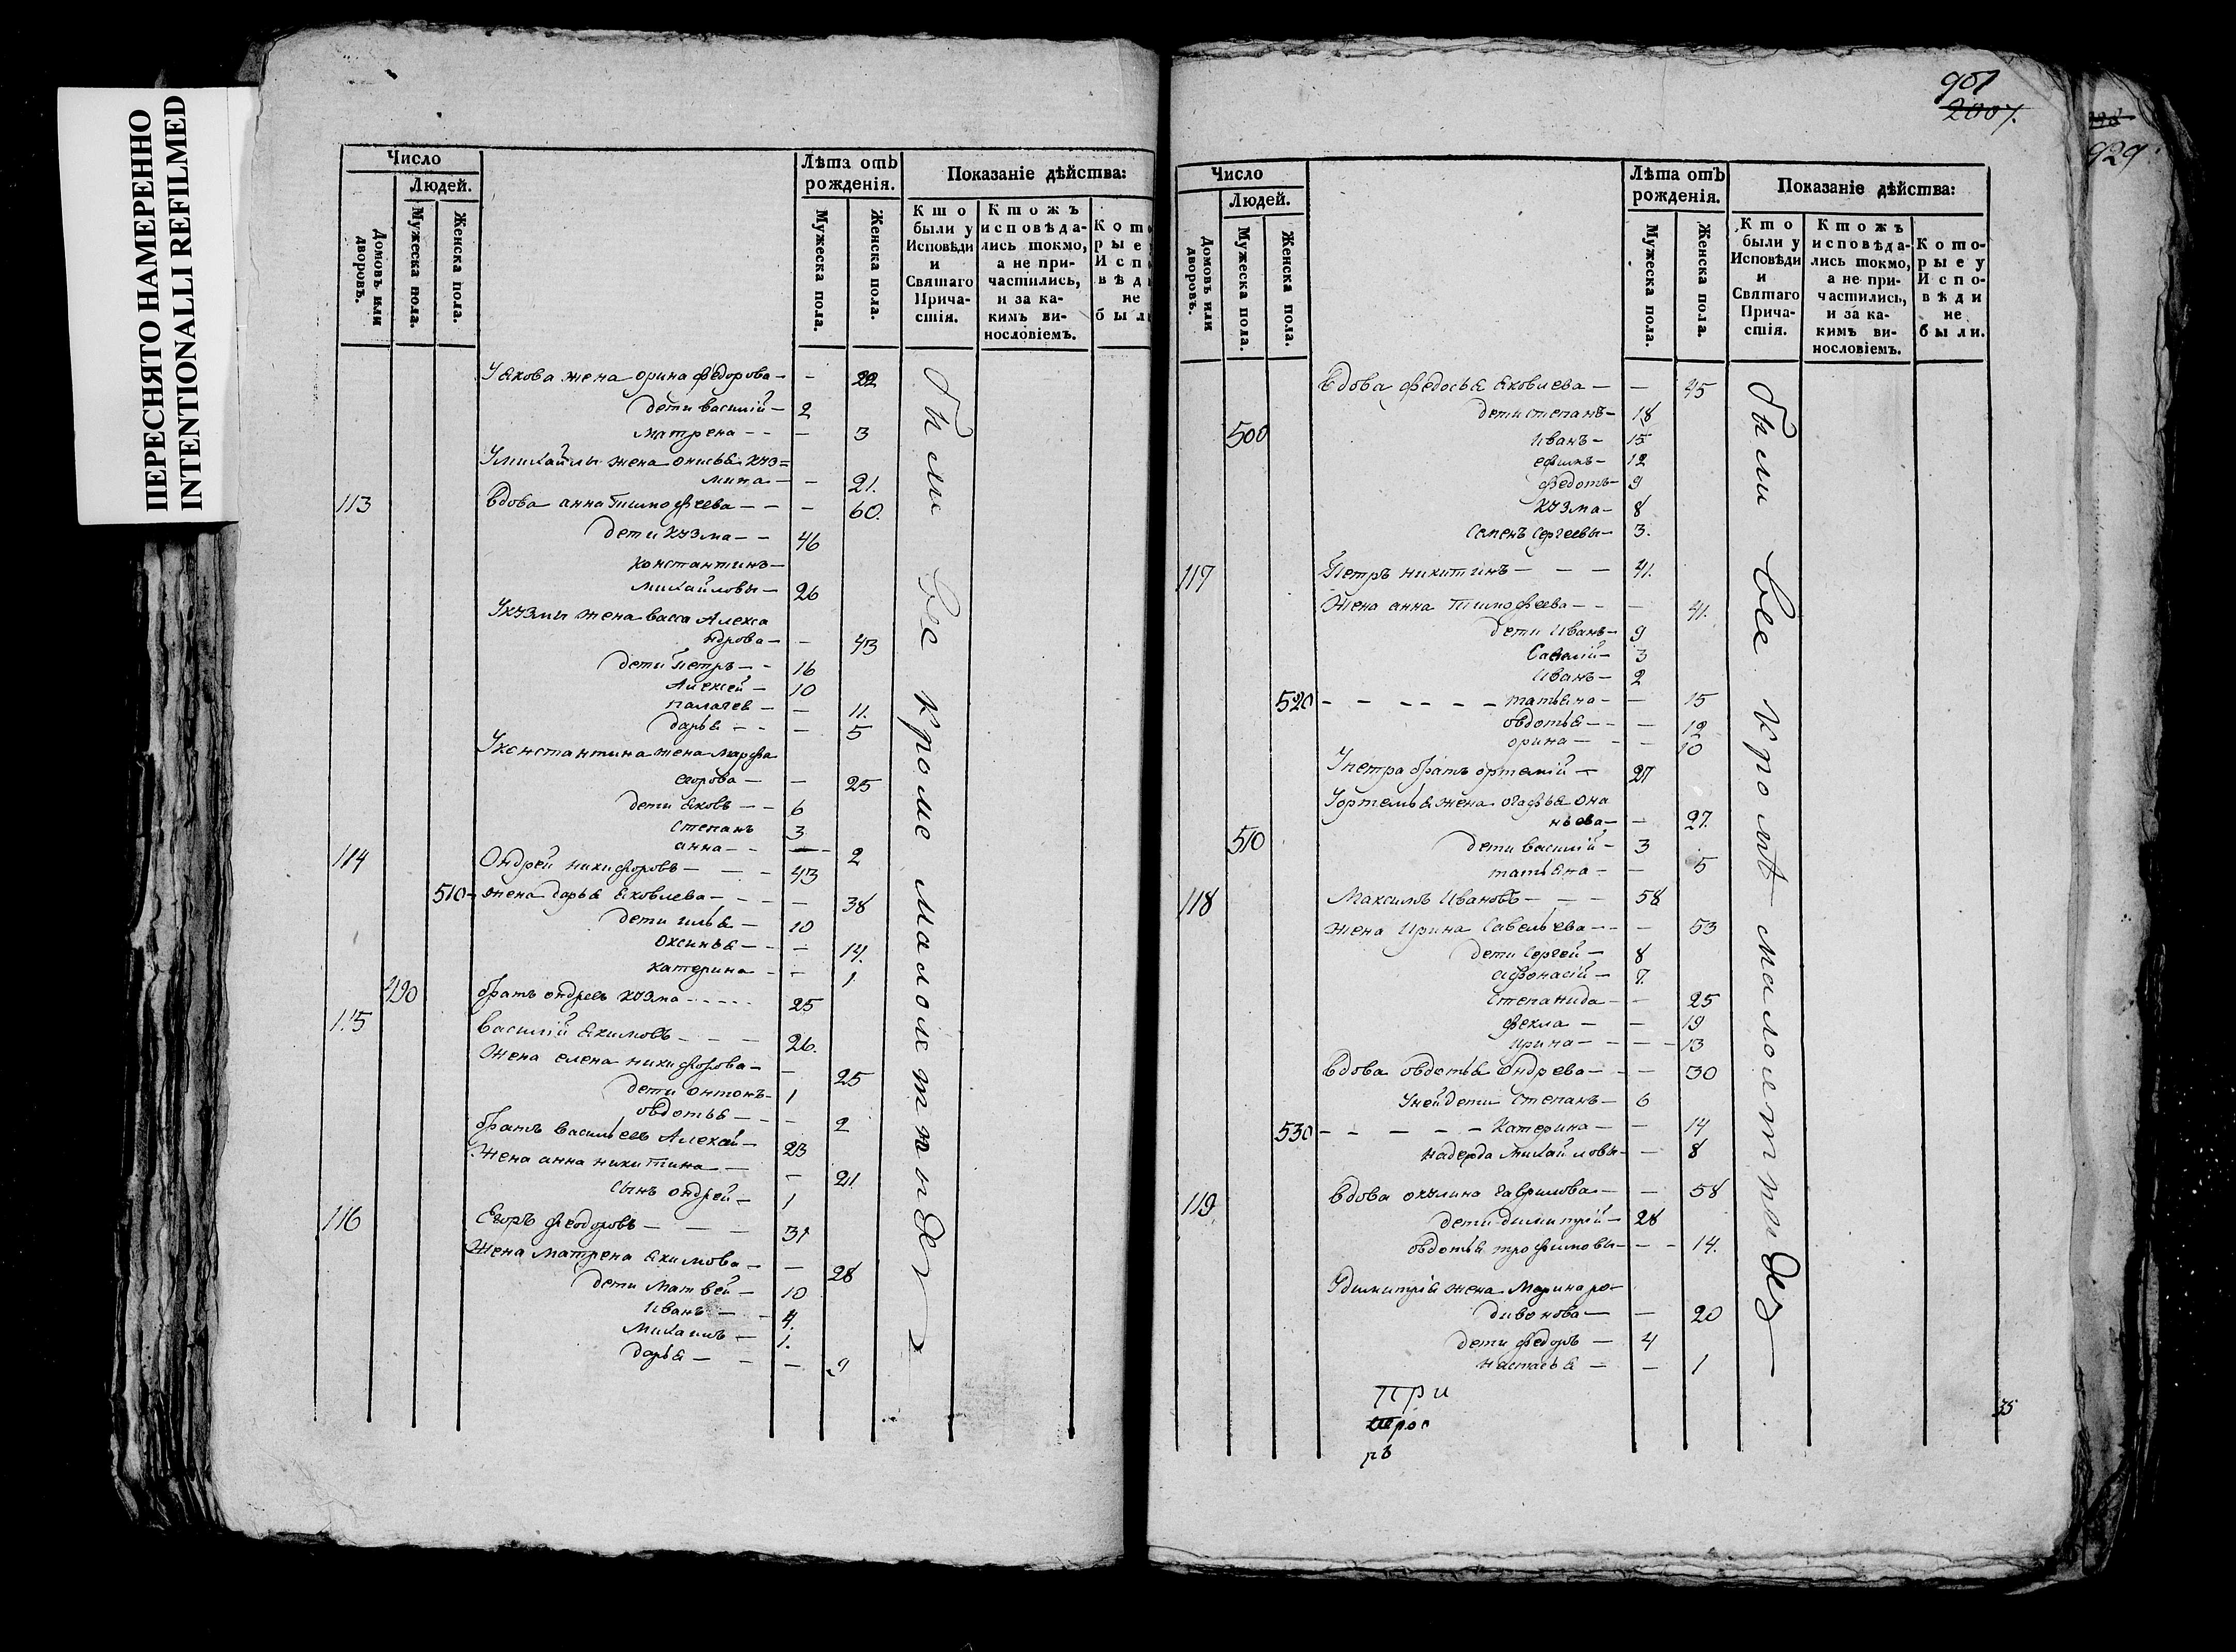 ПЕРЕСНЯТО НАМЕРЕННО
INTENTIONALLI REFILMED
Число
Людей.
Домовъ или дворовъ.
Мужеска пола.
Женска пола.
Лѣта отъ
рожденія.
Мужеска пола.
Женска пола.
Показаніе дѣйства:
Кто
были у
Исповѣди
и
Святаго
Прича-
стія.
Ктожъ
исповѣда-
лись токмо,
а не при-
частились,
и за ка-
кимъ ви-
нословіемъ.
У якова жена орина федорова — — 22
дети василій — 2
матрена — — — 3
У михайлы жена онисья куз=
мина — — 21.
113 вдова анна тимофеева — — — 60.
дети кузма — — 46
константинъ —
михайловы — 26
У кузмы жена васса Алекса
ндрова — — 43
дети петръ — — 16
Алексей — 10
палагея — — 11.
дарья — — — 5
У константина жена марфа
егорова — — 25
дети яковъ — — 6
степанъ 3
анна — — — 2
114 Ондрей никифоровъ — — — 43
510 — жена дарья яковлева — — — — 38
дети илья — 10
оксинья — — — 14.
катерина — — 1
490 братъ ондреевъ кузма - - - - - 25
115 василій якимовъ — — — 26.
Жена елена никифорова — — 25
дети онтонъ — 1
овдотья — — 2
братъ васильевъ Алексей — 23
Жена анна никитина — — 21
сынъ ондрей — 1
116 Егоръ феодоровъ — — — 31
Жена матрена якимова — — 28
дети матвей — 10
иванъ — — 4.
михаилъ — 1.
дарья — — — 9
были все кроме малолетныхъ
901
2007.
929
Число
Людей.
Домовъ или дворовъ.
Мужеска пола.
Женска пола.
Лѣта отъ
рожденія.
Мужеска пола.
Женска пола.
Показаніе дѣйства:
Кто
были у
Исповѣди
и
Святаго
Прича-
стія.
Ктожъ
исповѣда-
лись токмо,
а не при-
частились,
и за ка-
кимъ ви-
нословіемъ.
Кото-
рые у
Испо-
вѣди
не
были.
вдова федосья яковлева — — 45
дети степанъ — 18
500 иванъ — 15
ефимъ — 12
федотъ — 9
кузма — 8
семенъ сергеевы — 3.
117 Петръ никитинъ — — — 41.
Жена анна тимофеева — — — 41.
дети иванъ — 9
Савелій — 3
иванъ — 2
520 — — — — — — татьяна — — 15
овдотья — — — 12
орина — — — 10
У петра братъ ортемій — 27
У ортемья жена огафья она
ньева — — 27.
510 дети василій — 3
татьяна — — 5
118 Максимъ ивановъ — — — 58
жена ирина савельева — — — 53
дети сергей — 8
афонасій — 7.
степанида — — 25
фекла — — 19
ирина — — — — 13
вдова овдотья ондреева — — — 30
У ней дети степанъ — 6
530 — — — — — — катерина — — 14
надежда михайловы — — 8
119 вдова окулина гаврилова — — 58
дети димитрій — 28
овдотья трофимовы — — — 14.
У димитрія жена марина ро-
дивонова — — 20
дети федоръ — 4
настасья — — 1
были все кромѣ малолетныхъ
при
35